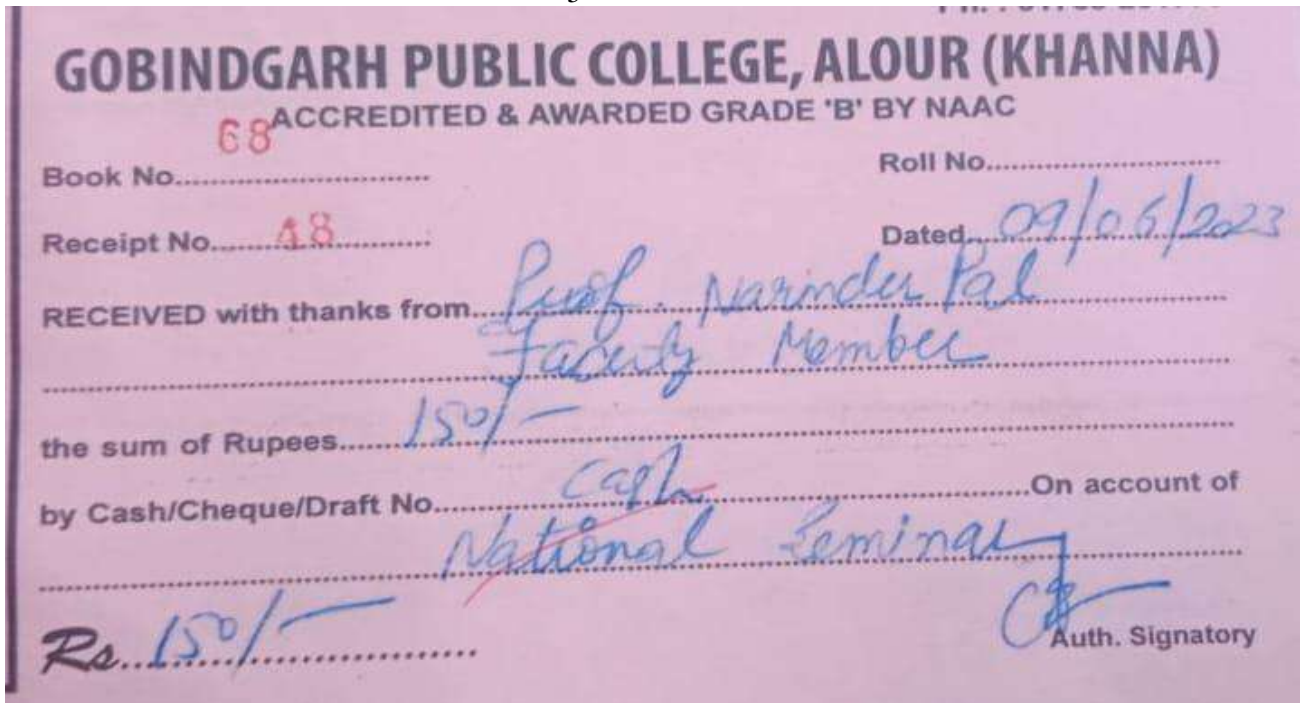 GOBINDGARH PUBLIC COLLEGE, ALOUR (KHANNA)
ACCREDITED & AWARDED GRADE 'B' BY NAAC
Book No. 68 Roll No.
Receipt No. 48 Dated 09/06/2023
RECEIVED with thanks from Prof. Narinder Pal
Faculty Member
the sum of Rupees 150/-
by Cash/Cheque/Draft No. Cash On account of
National Seminar
Rs. 150/-
Auth. Signatory